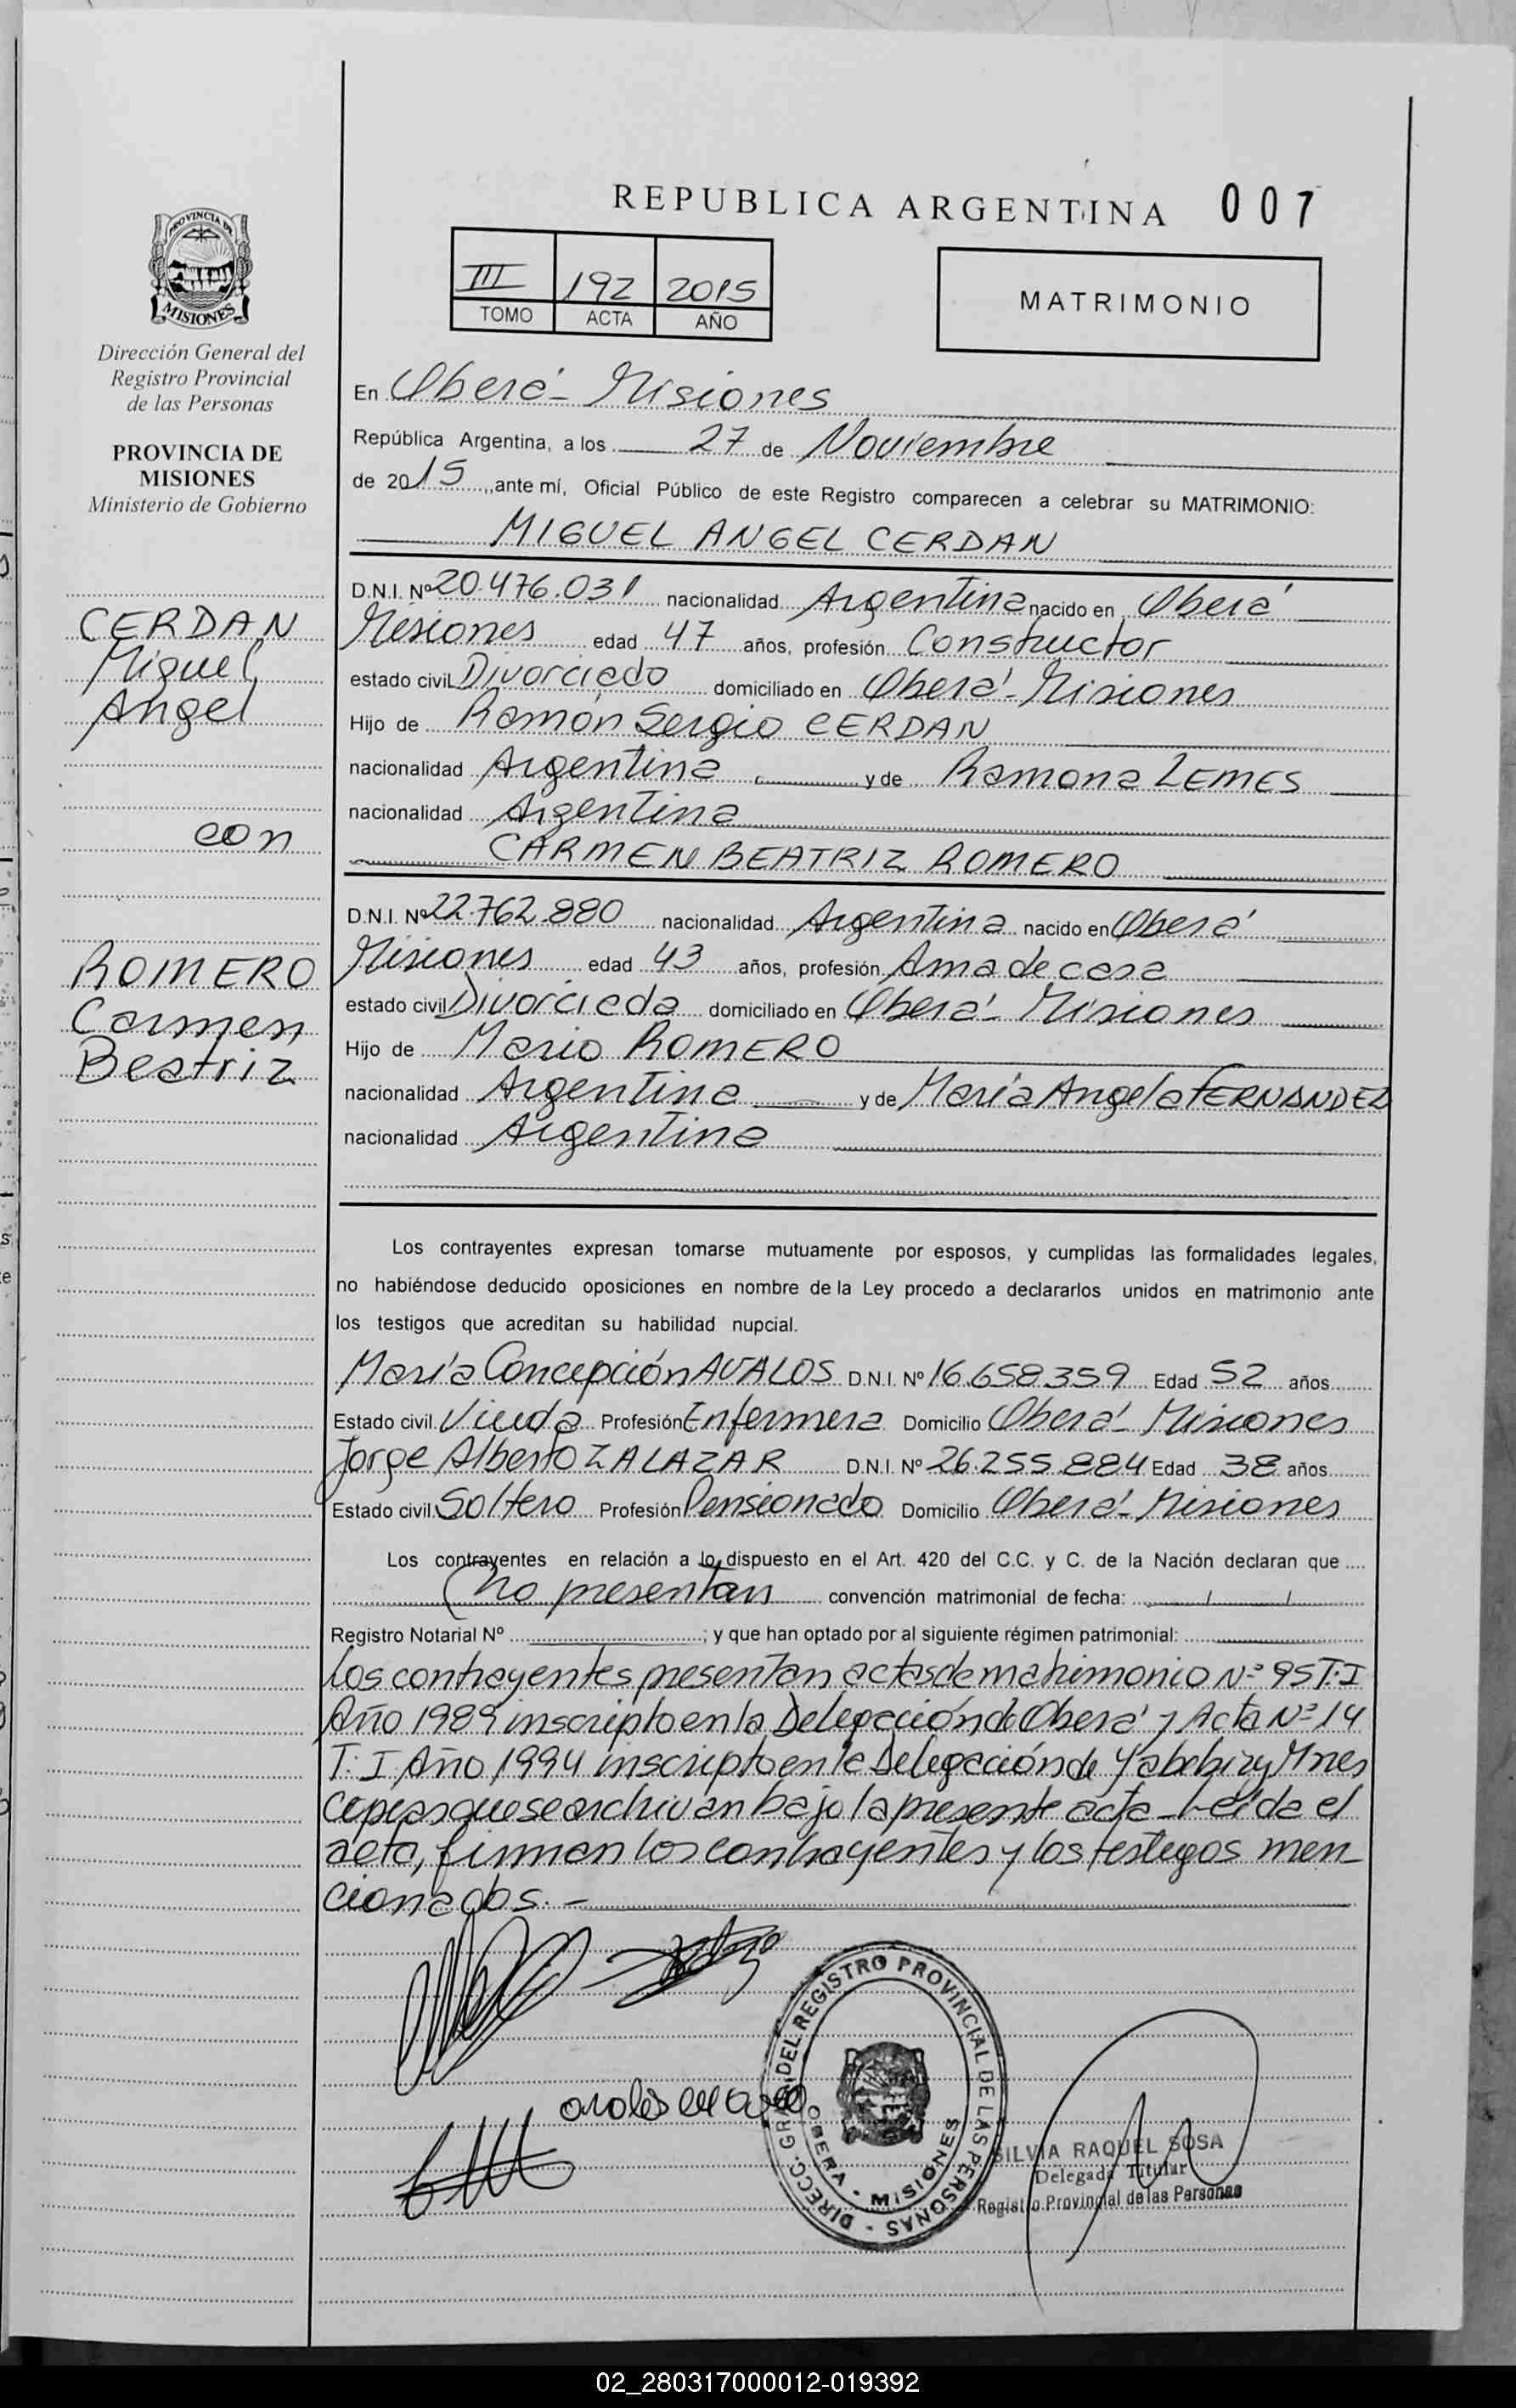 REPUBLICA ARGENTINA 007
III 192 2015
TOMO ACTA AÑO
MATRIMONIO
PROVINCIA DE
MISIONES
Dirección General del
Registro Provincial
de las Personas
PROVINCIA DE
MISIONES
Ministerio de Gobierno
CERDAN
Miguel
Angel
con
ROMERO
Carmen
Beatriz
En Oberá - Misiones
República Argentina, a los 27 de Noviembre
de 2015, ante mí, Oficial Público de este Registro comparecen a celebrar su MATRIMONIO:
MIGUEL ANGEL CERDAN
D.N.I. Nº 20.476.031 nacionalidad Argentina nacido en Oberá
Misiones edad 47 años, profesión Constructor
estado civil Divorciado domiciliado en Oberá - Misiones
Hijo de Ramón Sergio CERDAN
nacionalidad Argentina y de Ramona LEMES
nacionalidad Argentina
CARMEN BEATRIZ ROMERO
D.N.I. Nº 22.762.880 nacionalidad Argentina nacido en Oberá
Misiones edad 43 años, profesión Ama de casa
estado civil Divorciada domiciliado en Oberá - Misiones
Hijo de Mario ROMERO
nacionalidad Argentina y de María Angela FERNANDEZ
nacionalidad Argentina
Los contrayentes expresan tomarse mutuamente por esposos, y cumplidas las formalidades legales,
no habiéndose deducido oposiciones en nombre de la Ley procedo a declararlos unidos en matrimonio ante
los testigos que acreditan su habilidad nupcial.
María Concepción AVALOS D.N.I. Nº 16.658.359 Edad 52 años
Estado civil Viuda Profesión Enfermera Domicilio Oberá - Misiones
Jorge Alberto ZALAZAR D.N.I. Nº 26.255.884 Edad 38 años
Estado civil Soltero Profesión Pensionado Domicilio Oberá - Misiones
Los contrayentes en relación a lo dispuesto en el Art. 420 del C.C. y C. de la Nación declaran que
no presentan convención matrimonial de fecha: / /
Registro Notarial Nº ; y que han optado por al siguiente régimen patrimonial:
Los contrayentes presentan actas de matrimonio Nº 95 T: I
Año 1989 inscripto en la Delegación de Oberá y Acta Nº 14
T: I Año 1994 inscripto en la Delegación de Yabebiry Mnes
copias que se archivan bajo la presente acta - Leída el
acta, firman los contrayentes y los testigos men
cionados. -
DIRECC. GRAL. DEL REGISTRO PROVINCIAL DE LAS PERSONAS -
OBERA - MISIONES
SILVIA RAQUEL SOSA
Delegada Titular
Registro Provincial de las Personas
02_280317000012-019392